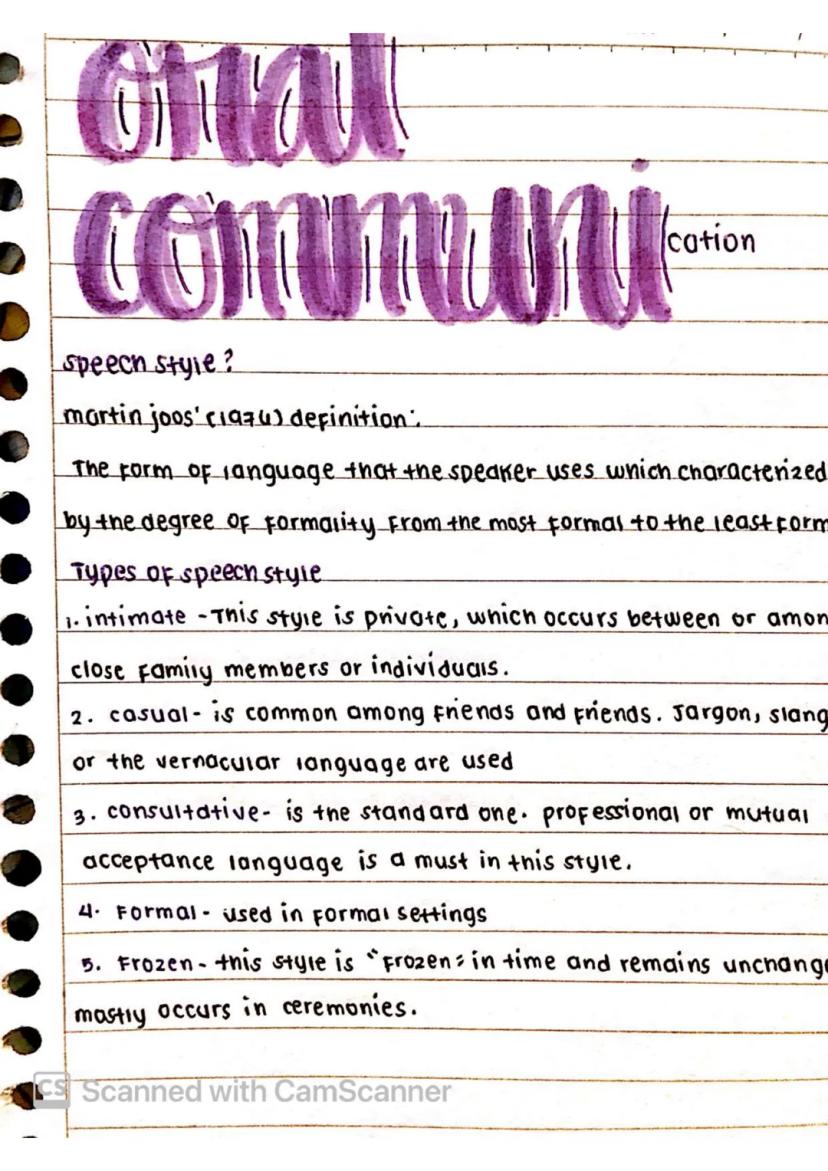 oral
communication
speech style?
martin joos' (1974) definition:
The form of language that the speaker uses which characterized
by the degree of formality from the most formal to the least form
Types of speech style
1. intimate - This style is private, which occurs between or amon
close family members or individuals.
2. casual - is common among friends and friends. Jargon, slang
or the vernacular language are used
3. consultative - is the standard one. professional or mutual
acceptance language is a must in this style.
4. Formal - used in formal settings
5. Frozen - this style is "Frozen" in time and remains unchange
mostly occurs in ceremonies.
CS Scanned with CamScanner